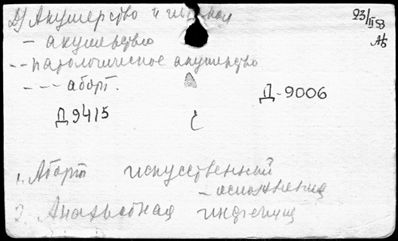 2) Акушерство и гинекол
23/III 53
– акушерство
АБ
-- патологическое акушерство
--- аборт.
Д-9006
Д9415
1. Аборт искусственный
– осложнения
2. Анаэробная инфекция